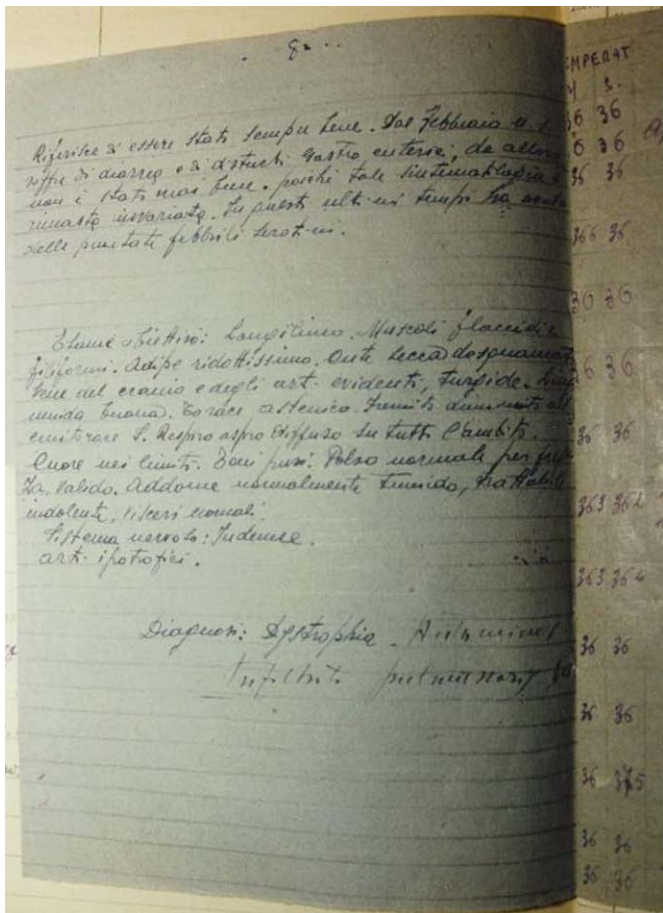 - 8 - ..
Riferisce di essere stato sempre bene. Dal Febbraio u. s.
soffre di diarrea e di disturbi gastro enterici, da allora
non è stato mai bene, poichè tale sintomatologia è
rimasta invariata. In questi ultimi tempi ha avuto
delle puntate febbrili serotini.
Esame obiettivo: Longilineo. Muscoli flaccidi e
filiformi. Adipe ridottissimo. Cute secca desquamat
Vene del cranio e degli art. evidenti, turgide. Lingua
umida buona. Torace astenico. Fremito diminuito
emitorace S. Respiro aspro diffuso su tutto l'ambito.
Cuore nei limiti. Toni puri. Polso normale per
za, valido. Addome normalmente tumido, trattabile
indolente, visceri normali.
Sistema nervoso: Indenne.
art. ipotrofici.
Diagnosi: Dystrophia
Infiltrato
MPERAT
S.
36 36
6 36
36 36
366 36
36 36
6 36
36 36
363 362
363 364
36 36
36 36
36 375
36 36
36 36